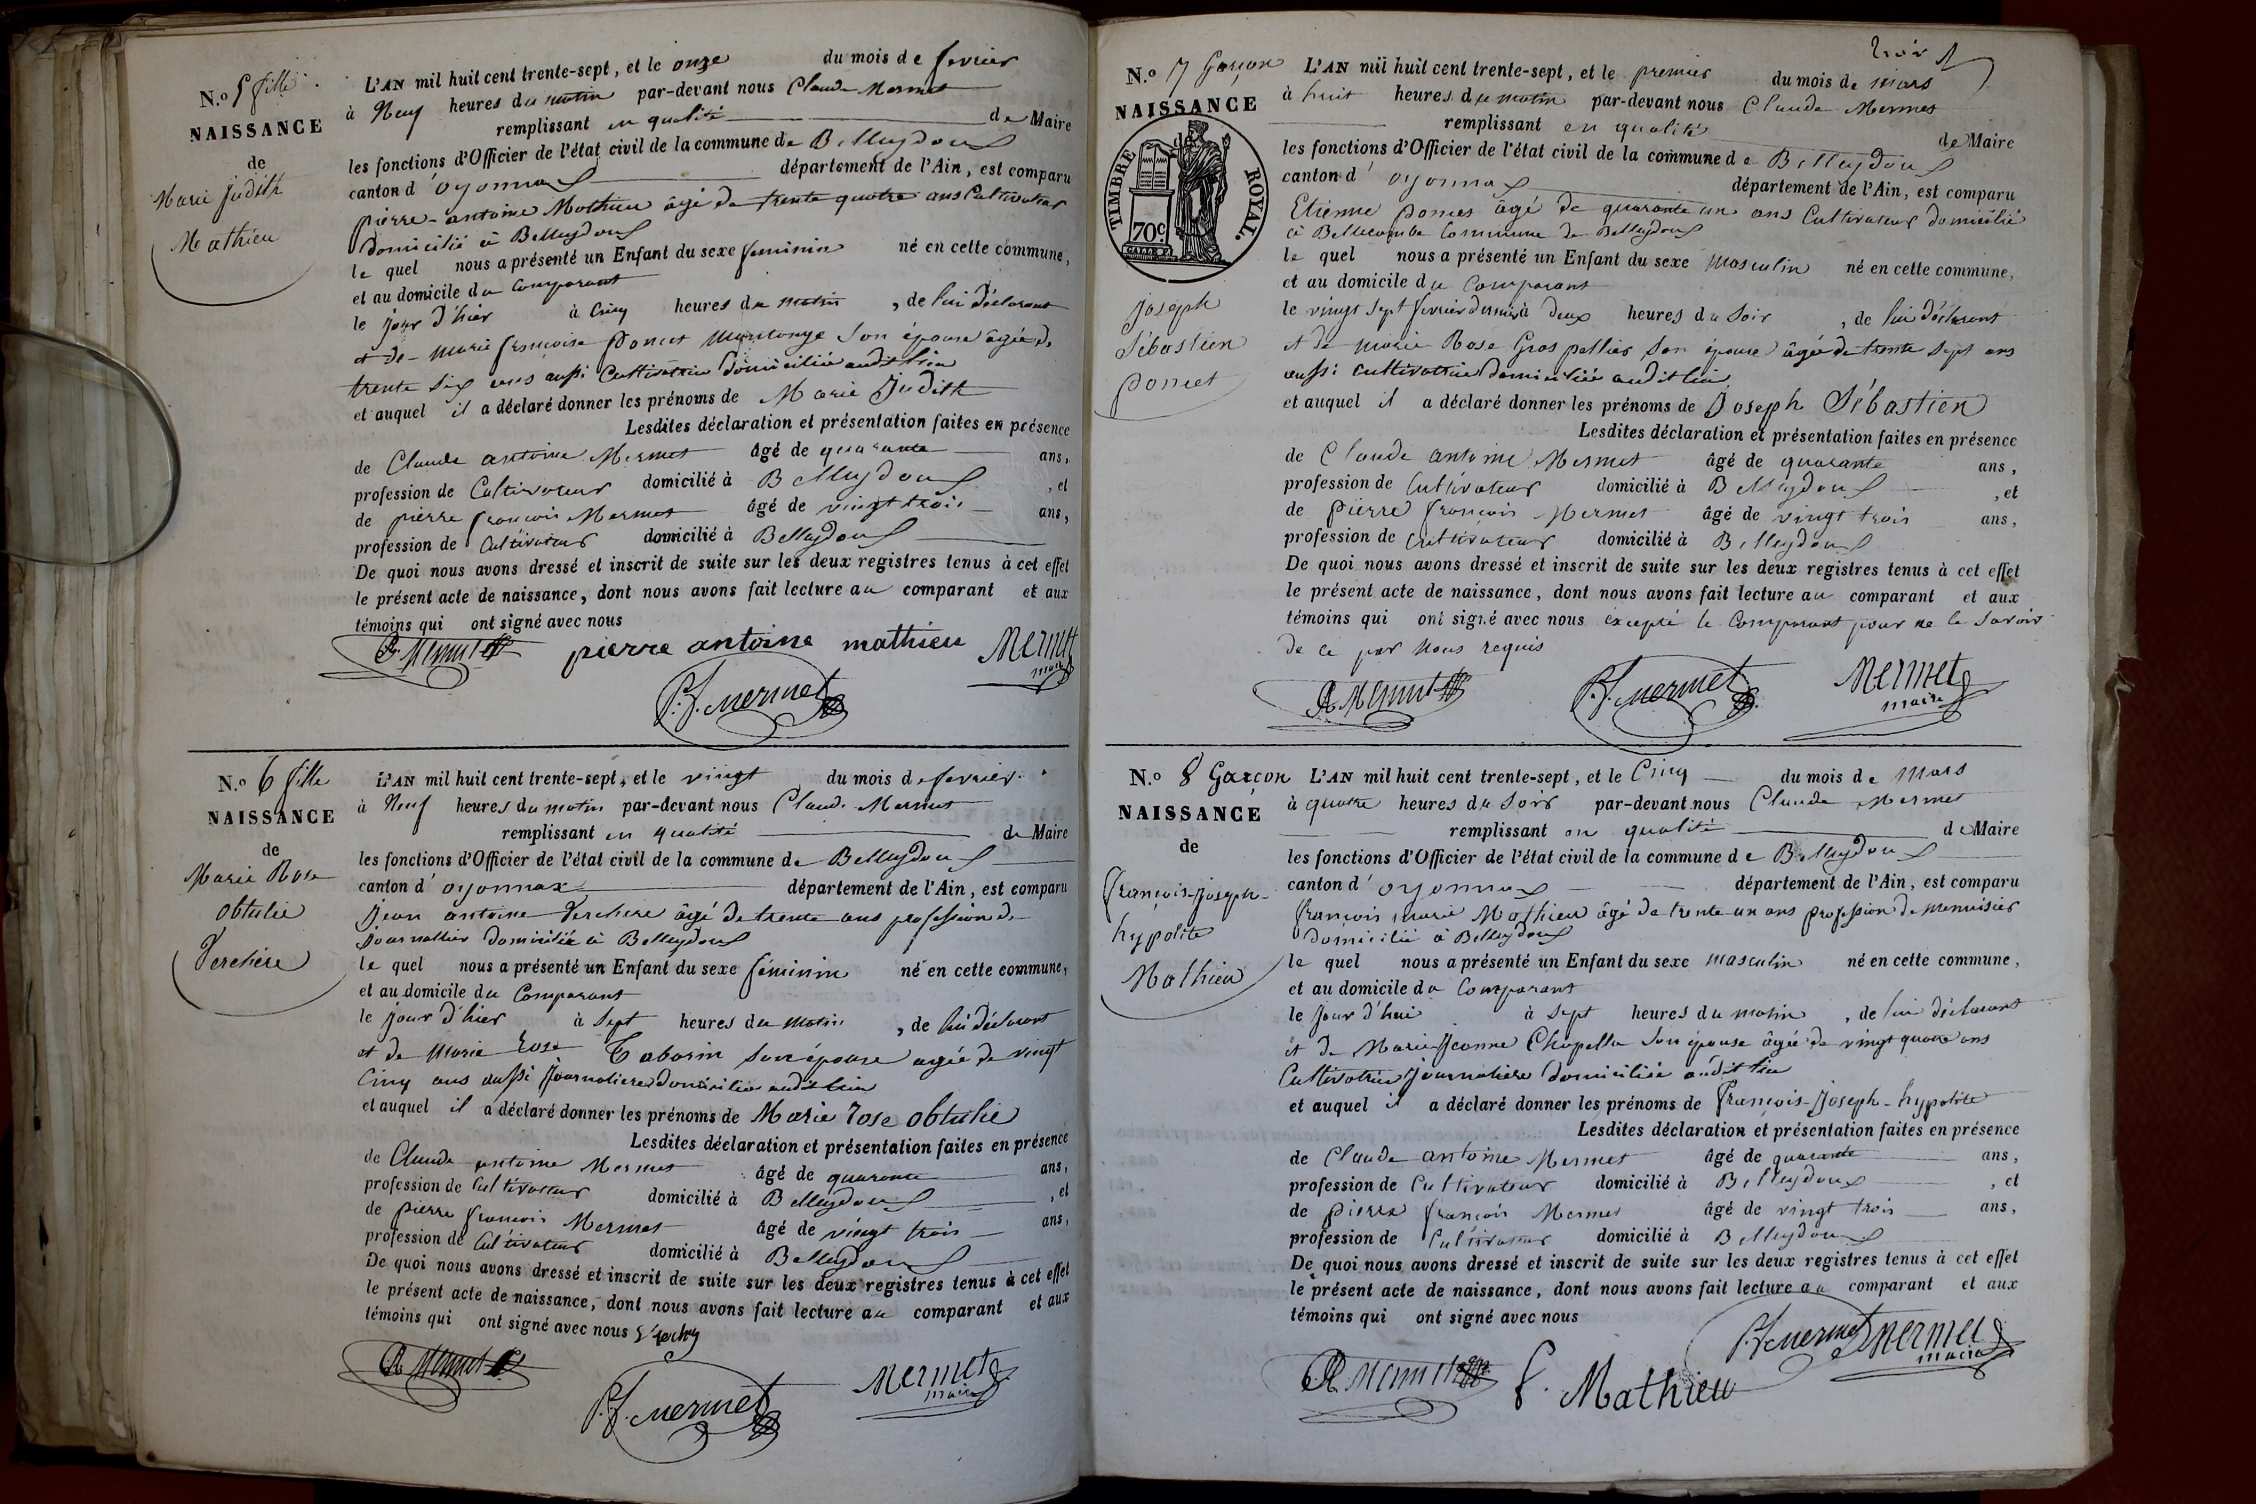 N.o 5 fille
NAISSANCE
de
Marie Judith
Mathieu
L'AN mil huit cent trente-sept, et le onze du mois de fevrier
à Neuf heures du matin par-devant nous Claude Mermet
remplissant en qualité de Maire
les fonctions d'Officier de l'état civil de la commune de Belleydoux
canton d'oyonnax département de l'Ain, est comparu
pierre-antoine Mathieu âgé de trente quatre ans Cultivateur
Domicilié à Belleydoux
le quel nous a présenté un Enfant du sexe feminin né en cette commune,
et au domicile du Comparant
le jour d'hier à Cinq heures du matin, de lui déclarant
et de marie françoise poncet son épouse âgée de
trente six ans aussi Cultivatrice domiciliée audit lieu
et auquel il a déclaré donner les prénoms de Marie Judith
Lesdites déclaration et présentation faites en présence
de Claude antoine Mermet âgé de quarante ans,
profession de Cultivateur domicilié à Belleydoux, et
de pierre françois Mermet âgé de vingt trois ans,
profession de Cultivateur domicilié à Belleydoux
De quoi nous avons dressé et inscrit de suite sur les deux registres tenus à cet effet
le présent acte de naissance, dont nous avons fait lecture au comparant et aux
témoins qui ont signé avec nous
Mermet pierre antoine mathieu Mermet
maire
P.f. mermet
N.o 6 fille
NAISSANCE
de
Marie Rose
obtulie
Verchere
L'AN mil huit cent trente-sept, et le vingt du mois de fevrier
à Neuf heures du matin par-devant nous Claude Mermet
remplissant en qualité de Maire
les fonctions d'Officier de l'état civil de la commune de Belleydoux
canton d'oyonnax département de l'Ain, est comparu
jean antoine Verchere âgé de trente ans profession de
journallier domicilié à Belleydoux
le quel nous a présenté un Enfant du sexe féminin né en cette commune,
et au domicile du Comparant
le jour d'hier à sept heures du matin, de lui déclarant
et de Marie rose Taborin son épouse agée de vingt
Cinq ans aussi journaliere domiciliée audit lieu
et auquel il a déclaré donner les prénoms de Marie rose obtulie
Lesdites déclaration et présentation faites en présence
de Claude antoine Mermet âgé de quarante ans,
profession de Cultivateur domicilié à Belleydoux, et
de pierre françois Mermet âgé de vingt trois ans,
profession de Cultivateur domicilié à Belleydoux
De quoi nous avons dressé et inscrit de suite sur les deux registres tenus à cet effet
le présent acte de naissance, dont nous avons fait lecture au comparant et aux
témoins qui ont signé avec nous
Mermet
P.f. mermet
Mermet
maire
N.o 7 Garçon
NAISSANCE
de
TIMBRE ROYAL.
70c.
Joseph
Sébastien
poncet
L'AN mil huit cent trente-sept, et le premier du mois de mars
à huit heures du matin par-devant nous Claude Mermet
remplissant en qualité de Maire
les fonctions d'Officier de l'état civil de la commune de Belleydoux
canton d'oyonnax département de l'Ain, est comparu
Etienne poncet âgé de quarante un ans Cultivateur domicilié
à Bellecombe Commune de Belleydoux
le quel nous a présenté un Enfant du sexe masculin né en cette commune,
et au domicile du Comparant
le vingt sept fevrier dernier à deux heures du soir, de lui déclarant
et de marie Rose Gros pellier son épouse âgée de trente sept ans
aussi cultivatrice domiciliée audit lieu
et auquel il a déclaré donner les prénoms de Joseph Sébastien
Lesdites déclaration et présentation faites en présence
de Claude antoine Mermet âgé de quarante ans,
profession de Cultivateur domicilié à Belleydoux, et
de pierre françois Mermet âgé de vingt trois ans,
profession de Cultivateur domicilié à Belleydoux
De quoi nous avons dressé et inscrit de suite sur les deux registres tenus à cet effet
le présent acte de naissance, dont nous avons fait lecture au comparant et aux
témoins qui ont signé avec nous excepté le Comparant pour ne le savoir
de ce par nous requis
Mermet P.f. mermet Mermet
maire
N.o 8 Garçon
NAISSANCE
de
françois-joseph-
hypolite
Mathieu
L'AN mil huit cent trente-sept, et le Cinq du mois de mars
à quatre heures du soir par-devant nous Claude Mermet
remplissant en qualité de Maire
les fonctions d'Officier de l'état civil de la commune de Belleydoux
canton d'oyonnax département de l'Ain, est comparu
françois marie Mathieu âgé de trente un ans profession de menuisier
domicilié à Belleydoux
le quel nous a présenté un Enfant du sexe masculin né en cette commune,
et au domicile du Comparant
le jour d'hui à sept heures du matin, de lui déclarant
et de Marie Jeanne Chapelle son épouse âgée de vingt quatre ans
Cultivatrice journaliere domiciliée audit lieu
et auquel il a déclaré donner les prénoms de françois-joseph-hypolite
Lesdites déclaration et présentation faites en présence
de Claude antoine Mermet âgé de quarante ans,
profession de Cultivateur domicilié à Belleydoux, et
de pierre françois Mermet âgé de vingt trois ans,
profession de Cultivateur domicilié à Belleydoux
De quoi nous avons dressé et inscrit de suite sur les deux registres tenus à cet effet
le présent acte de naissance, dont nous avons fait lecture au comparant et aux
témoins qui ont signé avec nous
P.f. mermet Mermet
maire
Mermet f. Mathieu